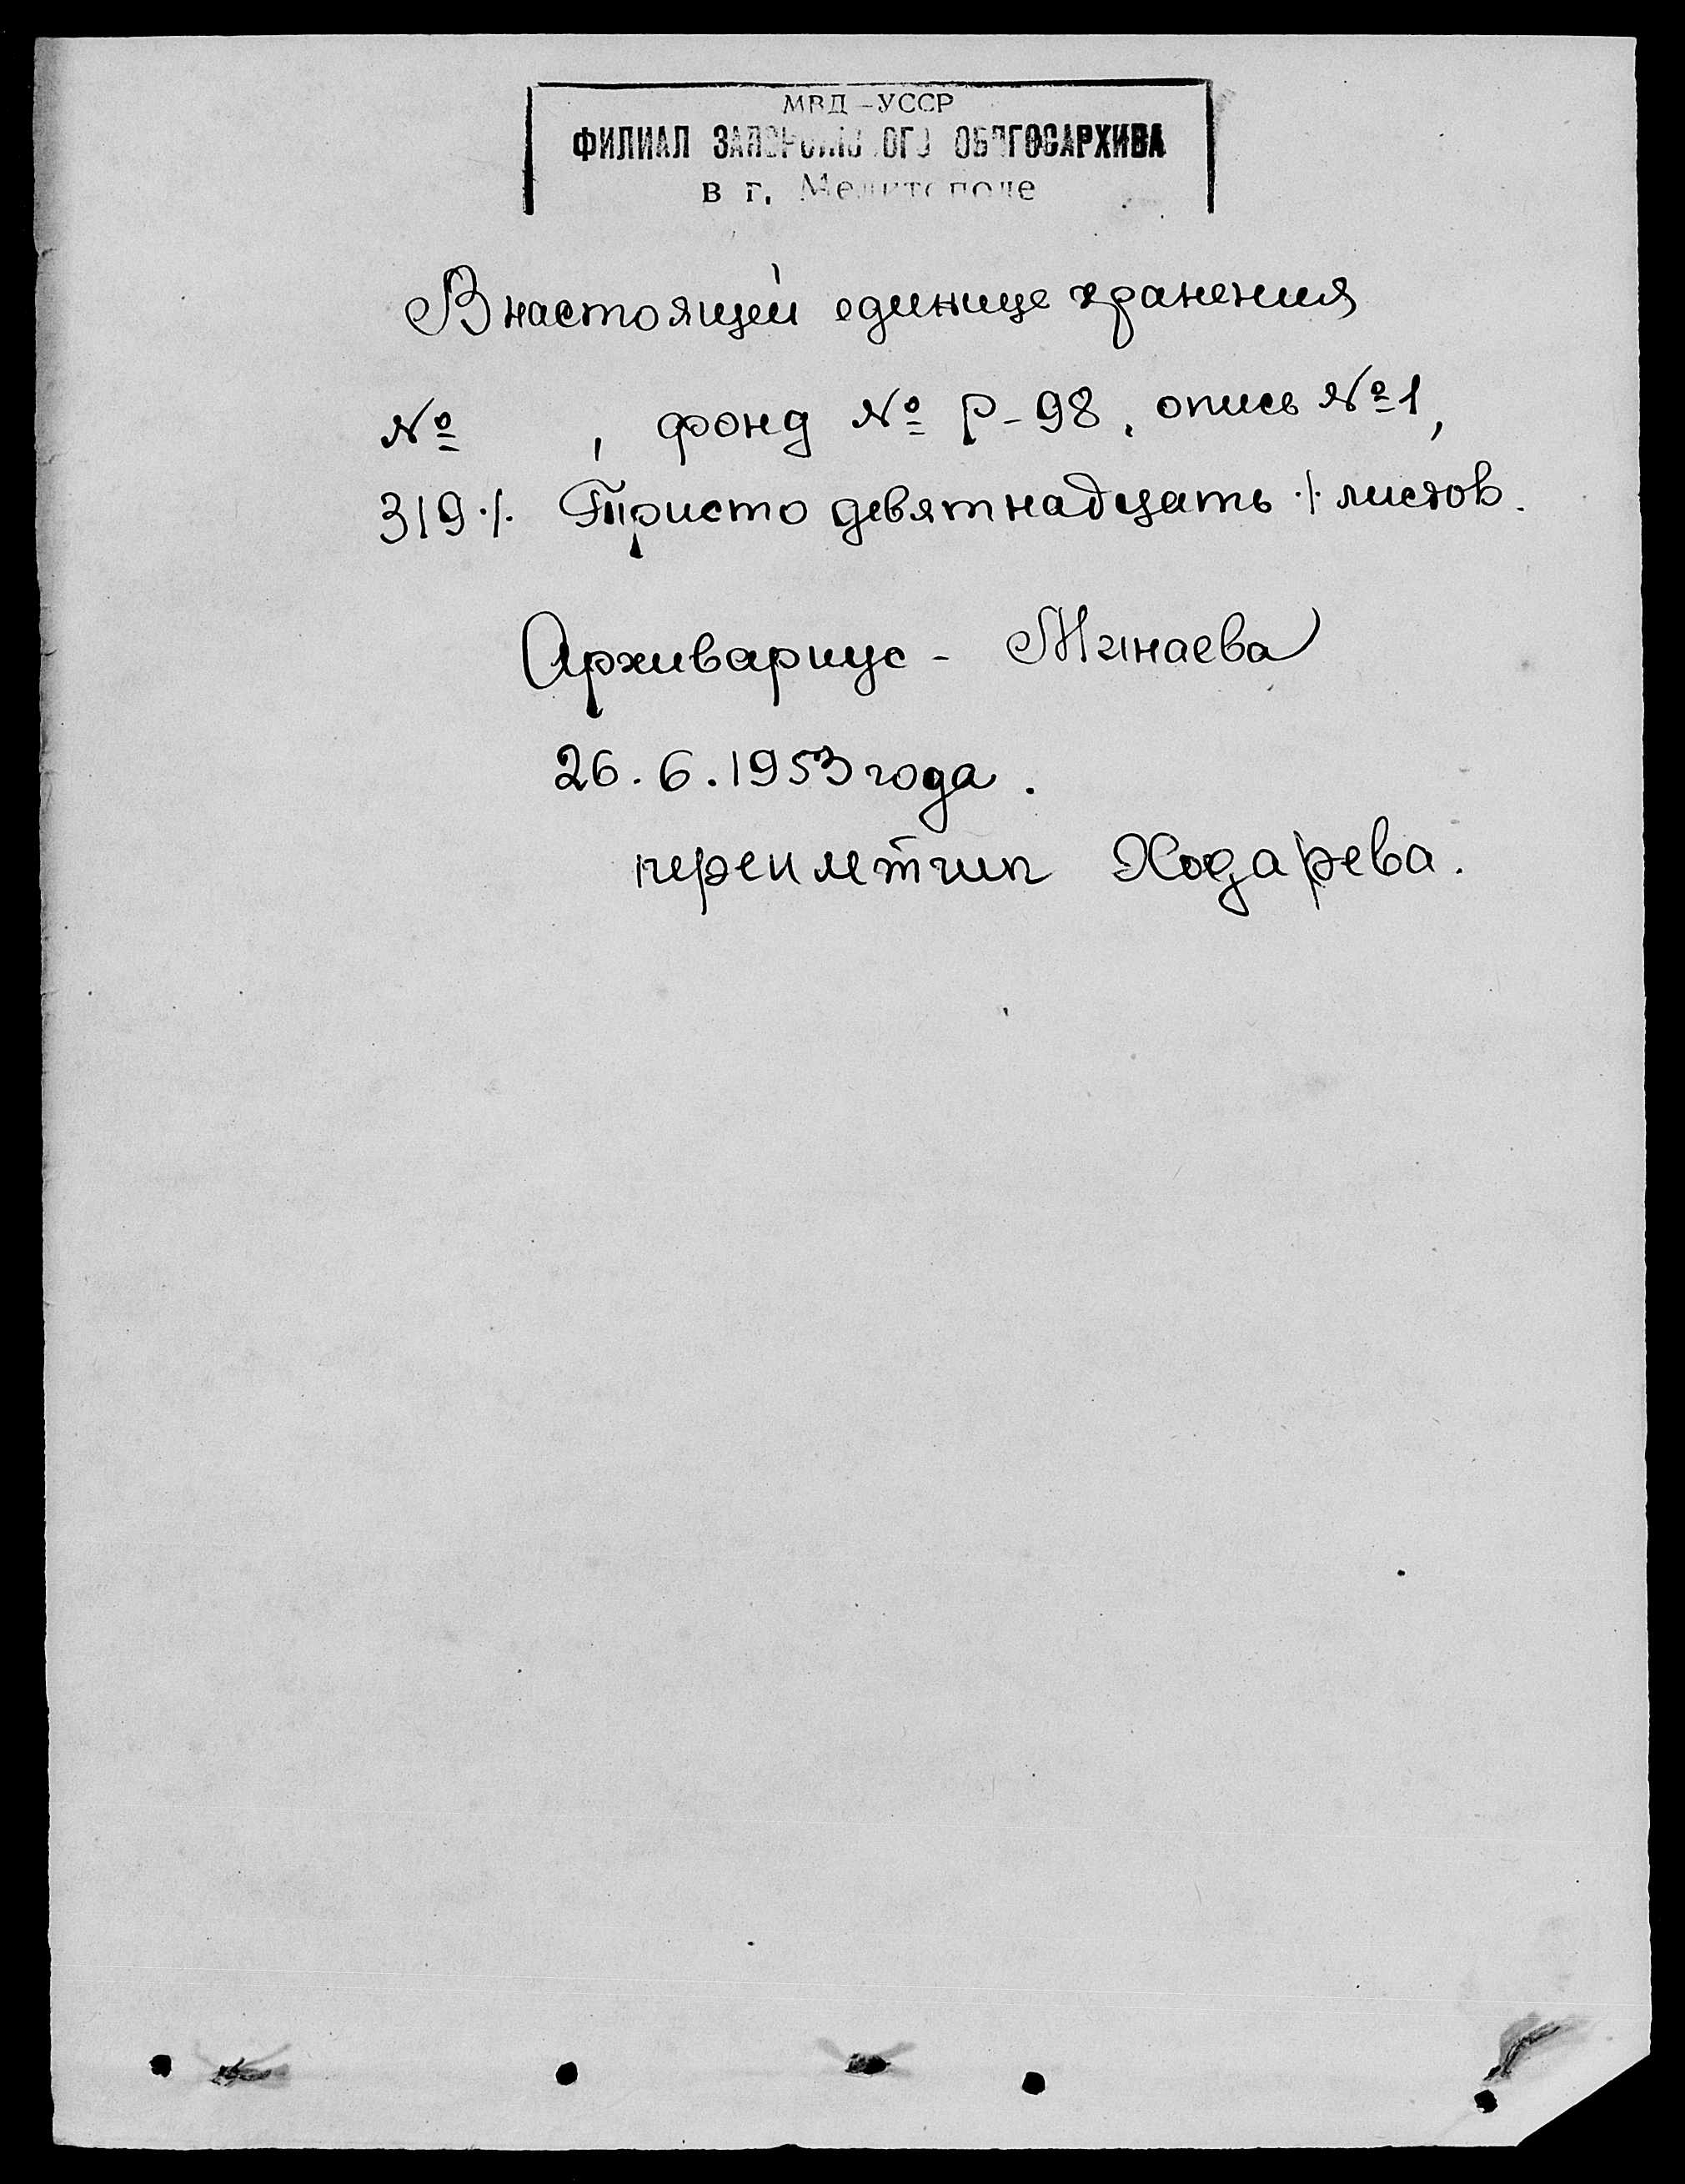 МВД-УССР
ФИЛИАЛ ЗАПОРОЖСКОГО ОБЛГОСАРХИВА
в г. Мелитополе
В настоящей единице хранения
№ , фонд № Р-98, опись №1,
319 ·/· Тристо девятнадцать ·/· листов.
Архивариус - Минаева
26.6.1953 года.
переплетчик Ходарева.